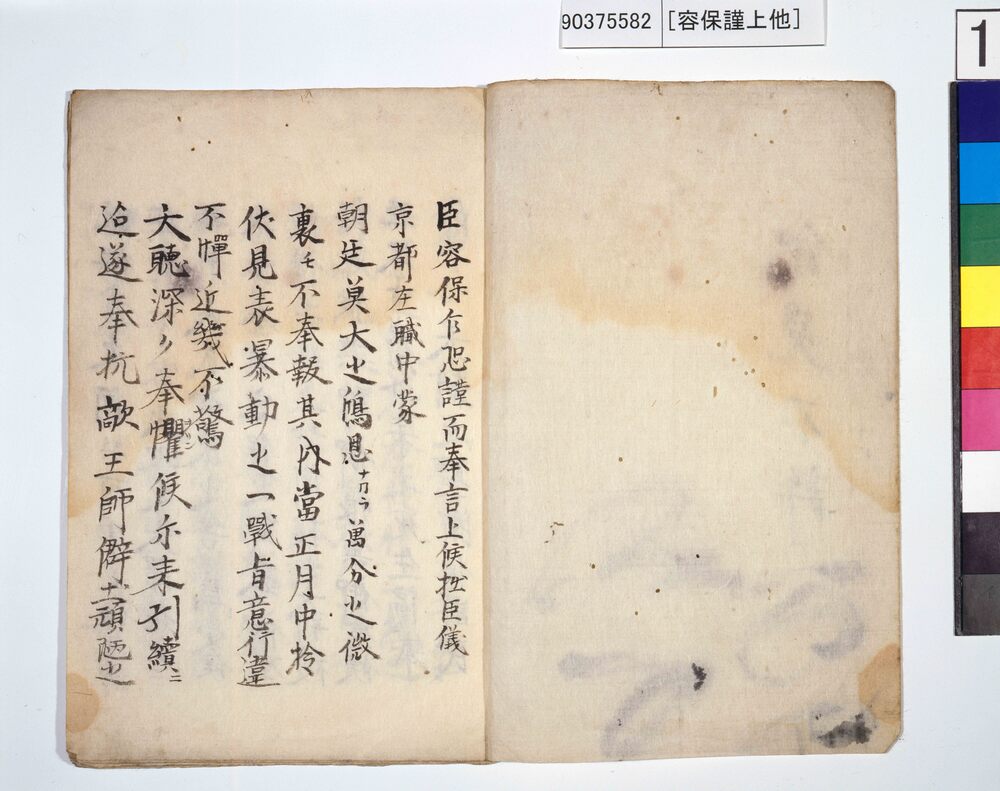 90375582 [容保謹上他]
1
臣容保乍恐謹而奉言上候拙臣儀
京都在職中蒙
朝廷莫大之鴻恩ナカラ萬分之微
裏モ不奉報其内當正月中於
伏見表暴動之一戰旨意行違
不憚近畿不驚
大聴深ク奉懼候尓来引續ニ
迨遂奉抗敵王師僻土頑陋之